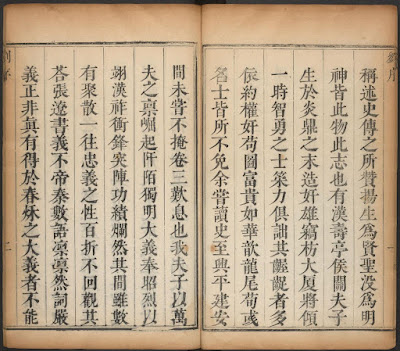 稱述史傳之所贊揚生爲賢聖沒爲明
神皆此物此志也有漢壽亭侯關夫子
生於炎鼎之末造奸雄竊枋大厦將傾
一時智勇之士策力俱詘其者多
依約權奸苟圖富貴如華歆龍尾荀彧
名士皆所不免余嘗讀史至興平建安
間未嘗不掩卷三歎息也我夫子以萬
夫之禀崛起阡陌獨明大義奉昭烈以
翊漢祚衝鋒突陣功績爛然其間雖數
有聚散一往忠義之性百折不回觀其
荅張遼書義不帝秦數語凜凜然詞嚴
義正非眞有得於春秋之大義者不能